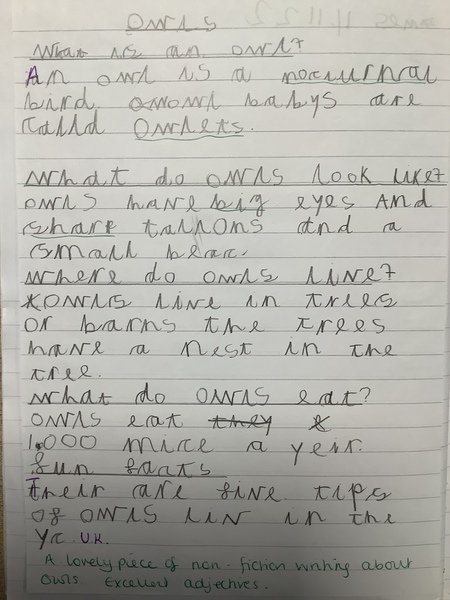 OWLS
What is an owl?
An owl is a nocturnal
bird. owl babys are
calld Owlets.
What do owls look like?
owls have big eyes And
sharp tallons and a
small beac.
Where do owls live?
owls live in trees
or barns the trees
have a nest in the
tree.
what do owls eat?
owls eat they
1.000 mice a yeir.
fun facts
Their are five tips
of owls liv in the
UK.
A lovely piece of non-fiction writing about
owls. Excellent adjectives.